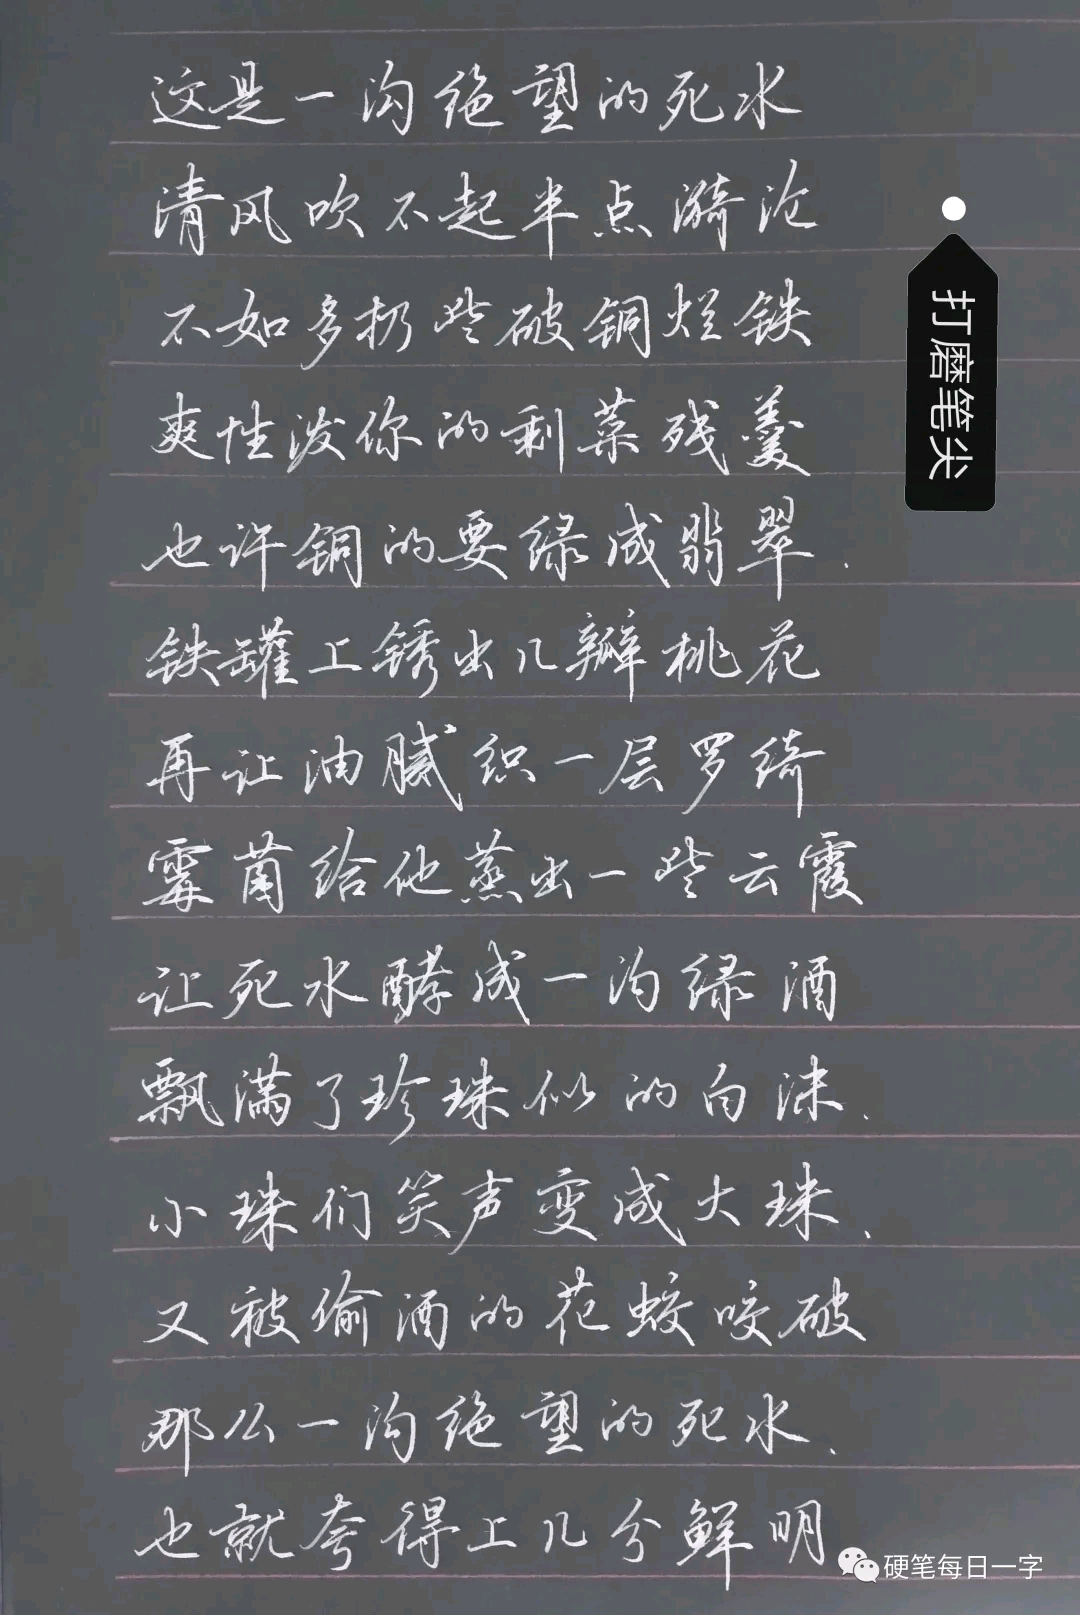 这是一沟绝望的死水
清风吹不起半点漪沦
不如多扔些破铜烂铁
爽性泼你的剩菜残羹
也许铜的要绿成翡翠.
铁罐上锈出几瓣桃花
再让油腻织一层罗绮
霉菌给他蒸出一些云霞
让死水酵成一沟绿酒
飘满了珍珠似的白沫.
小珠们笑声变成大珠、
又被偷酒的花蚊咬破
那么一沟绝望的死水、
也就夸得上几分鲜明
打磨笔尖
硬笔每日一字